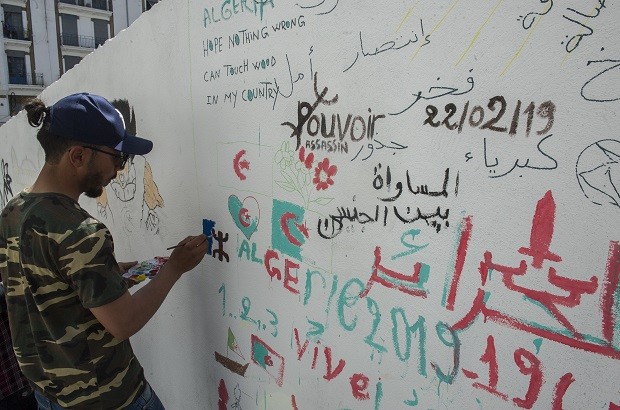 ALGERIA
HOPE NOTHING WRONG
CAN TOUCH WOOD
IN MY COUNTRY
أمل
إنتصار
فخر
Pouvoir
ASSASSIN
22/02/19
جذور
كبرياء
المساواة
بين الجنسين
الجزائر
ALGErie 2019
1..2..3
VIVE